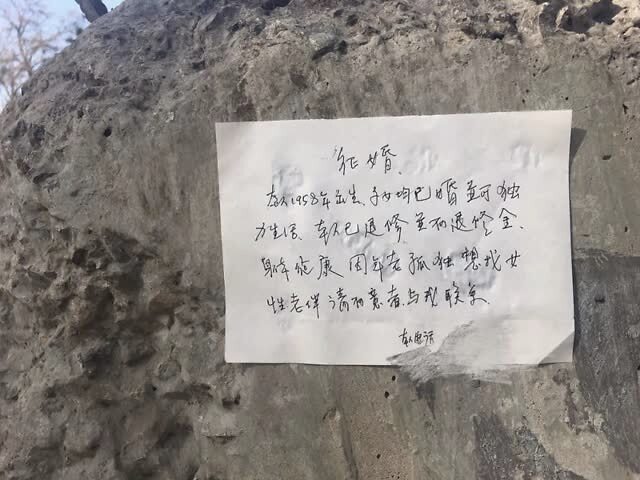 征婚
本人1958年出生、子女均已婚并可独
力生活、本人已退修并有退修金、
身体健康 因年老孤独想找女
性老伴 请有意者与我联系
本人电话